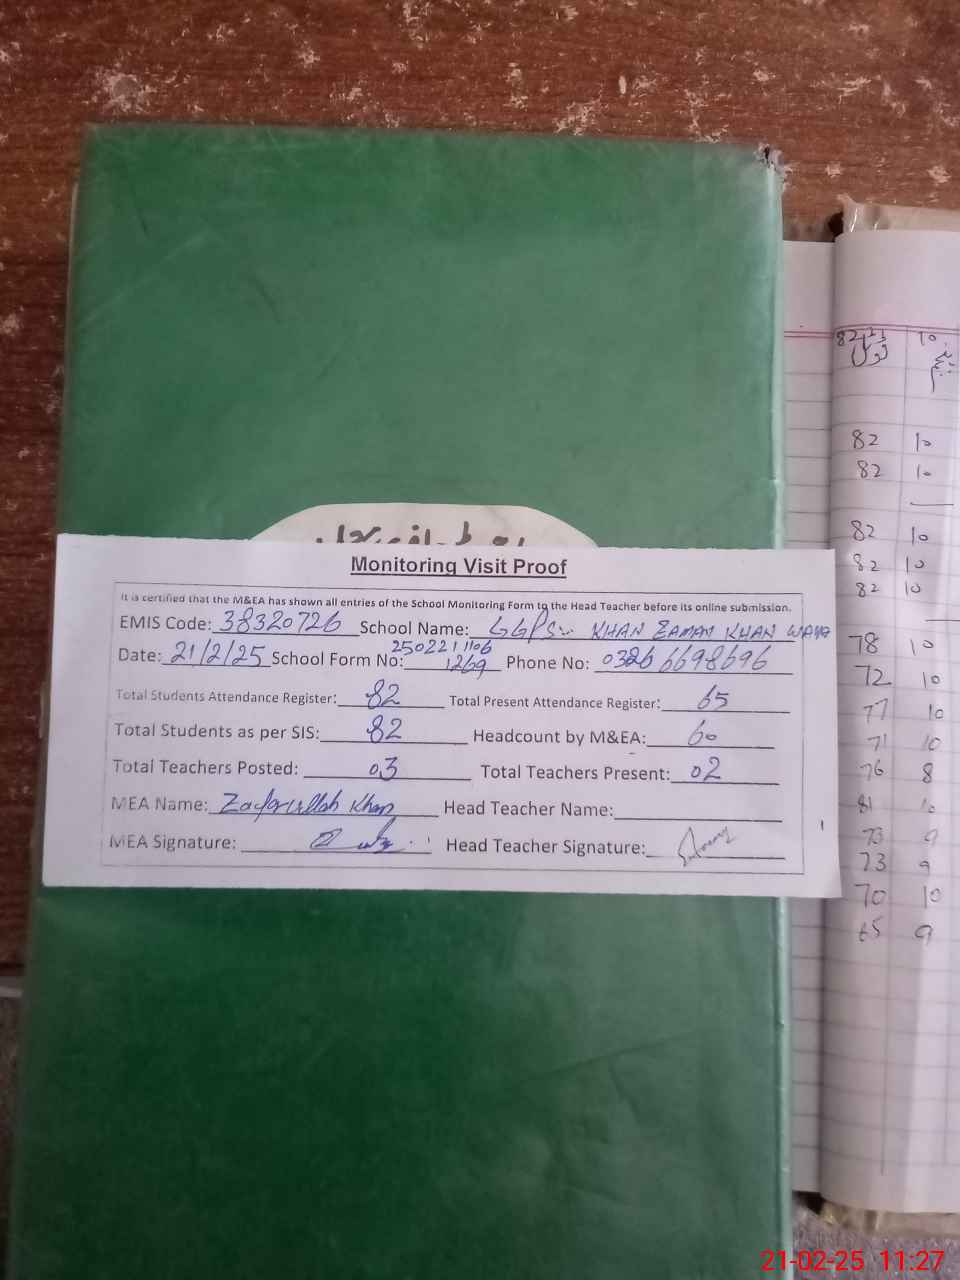 Monitoring Visit Proof
It is certified that the M&EA has shown all entries of the School Monitoring Form to the Head Teacher before its online submission.
EMIS Code: 38320726 School Name: GGPS KHAN ZAMAN KHAN WAMA
2502211106
Date: 21/2/25 School Form No: 1269 Phone No: 0326 6698696
Total Students Attendance Register: 82 Total Present Attendance Register: 65
Total Students as per SIS: 82 Headcount by M&EA: 60
Total Teachers Posted: 03 Total Teachers Present: 02
MEA Name: Zafarullah Khan Head Teacher Name:
MEA Signature: Head Teacher Signature:
82 10
82 10
82 10
82 10
82 10
82 10
78 10
72 10
77 10
71 10
76 8
81 10
73 9
73 9
70 10
65 9
21-02-25 11:27